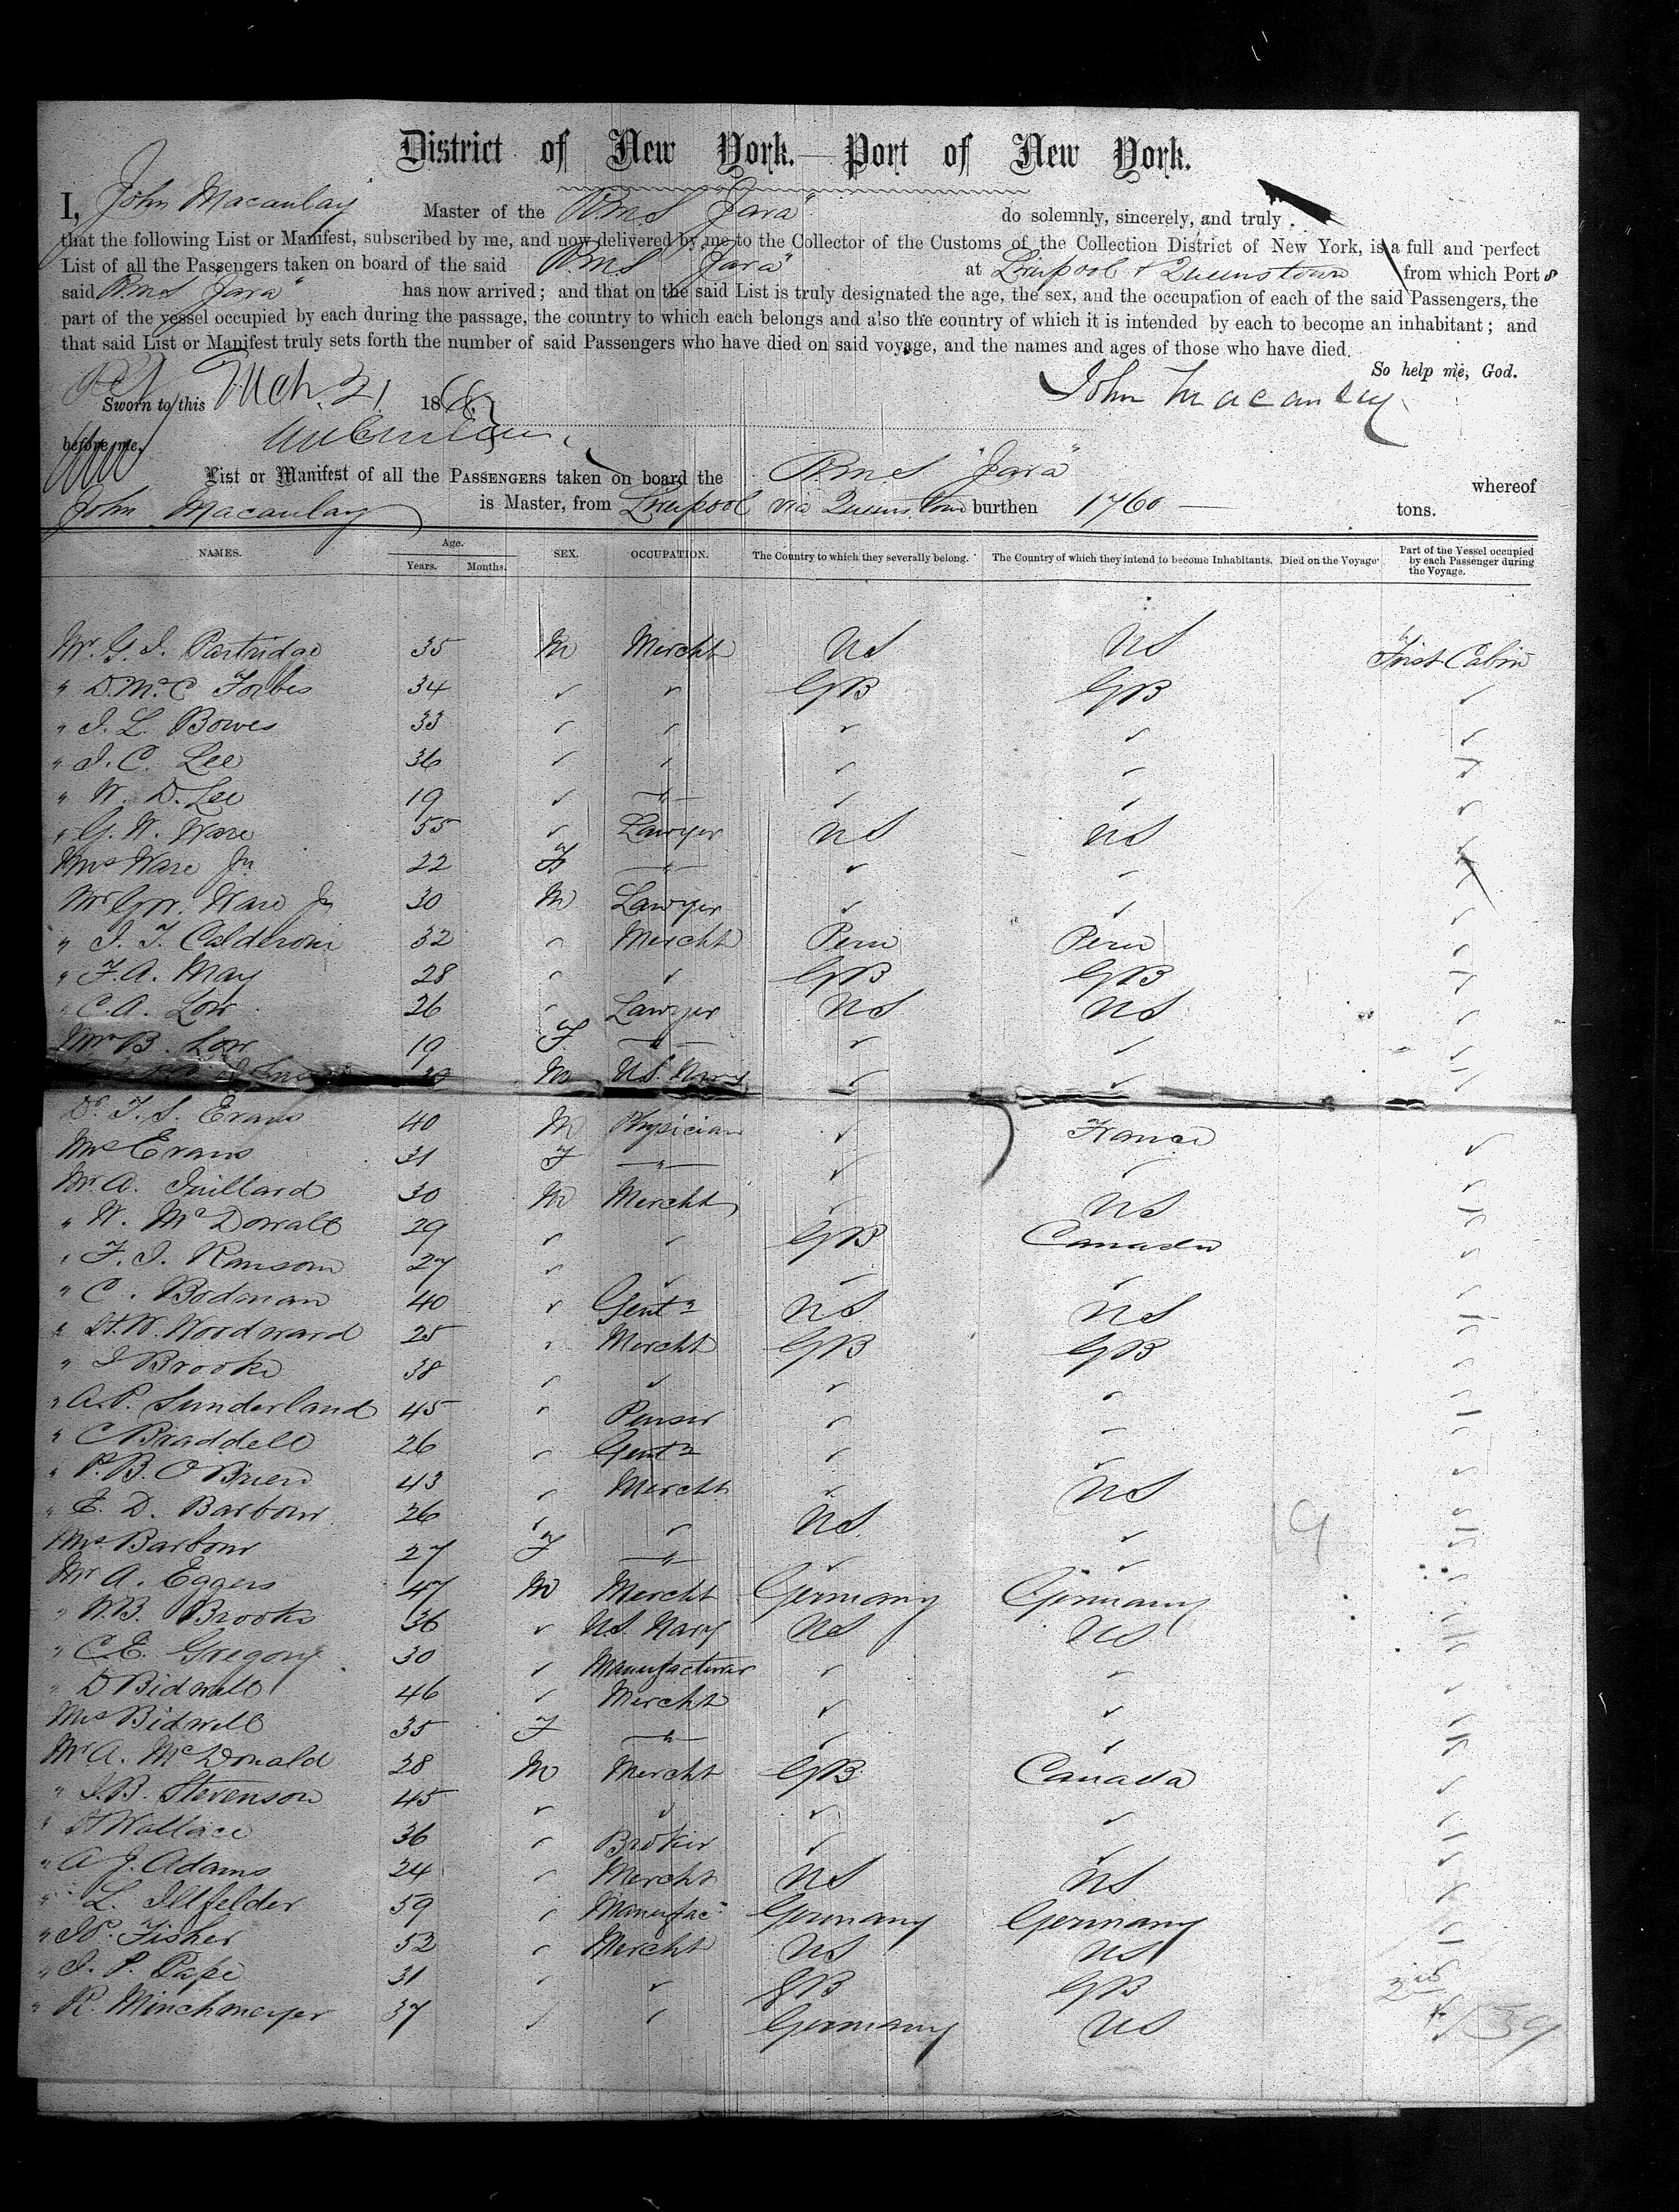 District of New York. — Port of New York.
I, John Macaulay Master of the RMS "Java" do solemnly, sincerely, and truly
that the following List or Manifest, subscribed by me, and now delivered by me to the Collector of the Customs of the Collection District of New York, is a full and perfect
List of all the Passengers taken on board of the said RMS "Java" at Liverpool & Queenstown from which Port
said RMS "Java" has now arrived; and that on the said List is truly designated the age, the sex, and the occupation of each of the said Passengers, the
part of the vessel occupied by each during the passage, the country to which each belongs and also the country of which it is intended by each to become an inhabitant; and
that said List or Manifest truly sets forth the number of said Passengers who have died on said voyage, and the names and ages of those who have died.
So help me, God.
Sworn to this Mch. 21 186 John Macaulay
before me,
List or Manifest of all the PASSENGERS taken on board the RMS "Java" whereof
John Macaulay is Master, from Liverpool via Queenstown burthen 1760 — tons.
NAMES. Age. Years. Months. SEX. OCCUPATION. The Country to which they severally belong. The Country of which they intend to become Inhabitants. Died on the Voyage. Part of the Vessel occupied by each Passenger during the Voyage.
Mr. G. I. Partridge 35 M Mercht US US First Cabin
" D. McC Forbes 34 ✓ ✓ GB GB ✓
" I. L. Bowes 33 ✓ ✓ ✓ ✓ ✓
" I. C. Lee 36 ✓ ✓ ✓ ✓ ✓
" W. D. Lee 19 ✓ —"— ✓ ✓ ✓
" G. W. Ware 55 ✓ Lawyer US US ✓
Mrs Ware Jr 22 F —"— ✓ ✓ ✓
Mr Gw. Ware Jr 30 M Lawyer ✓ ✓ ✓
" I. F. Calderoni 32 ✓ Mercht Peru Peru ✓
" F. A. May 28 ✓ ✓ GB GB ✓
" C. A. Low 26 ✓ Lawyer US US ✓
B. Low 19 F —"— ✓ ✓ ✓
M US. Navy ✓ ✓ ✓
Dr. T. S. Evans 40 M Physician ✓ France ✓
Mrs Evans 31 F —"— ✓ ✓ ✓
Mr A. Juillard 30 M Mercht ✓ US ✓
" W. McDowall 29 ✓ ✓ GB Canada ✓
" F. I. Ransom 27 ✓ ✓ ✓ ✓ ✓
" C. Bodman 40 ✓ Gentn US US ✓
" H. W. Woodward 25 ✓ Mercht GB GB ✓
" I Brooke 38 ✓ ✓ ✓ ✓ ✓
" A. P. Sunderland 45 ✓ ✓ ✓ ✓
" C Braddell 26 ✓ Gentn ✓ ✓ ✓
" P. B. O'Brien 43 ✓ Mercht ✓ US ✓
" E. D. Barbour 26 ✓ ✓ US ✓ ✓
Mrs Barbour 27 F —"— ✓ ✓ ✓
Mr A. Eggers 47 M Mercht Germany Germany ✓
" W. B. Brooks 36 ✓ U.S. Navy US US ✓
" C. E. Gregory 30 ✓ Manufacturer ✓ ✓ ✓
" D Bidwell 46 ✓ Mercht ✓ ✓ ✓
Mrs Bidwell 35 F —"— ✓ ✓ ✓
Mr A. McDonald 28 M Mercht GB Canada ✓
" I. B. Stevenson 45 ✓ ✓ ✓ ✓ ✓
" H Wallace 36 ✓ Broker ✓ ✓ ✓
" A J. Adams 24 ✓ Mercht US US ✓
" L. Illfelder 59 ✓ Manufac Germany Germany ✓
" Fisher 52 ✓ Mercht US US ✓
" I. P. Pape 31 ✓ ✓ GB GB
" R. Minchmeyer 37 ✓ ✓ Germany US 39